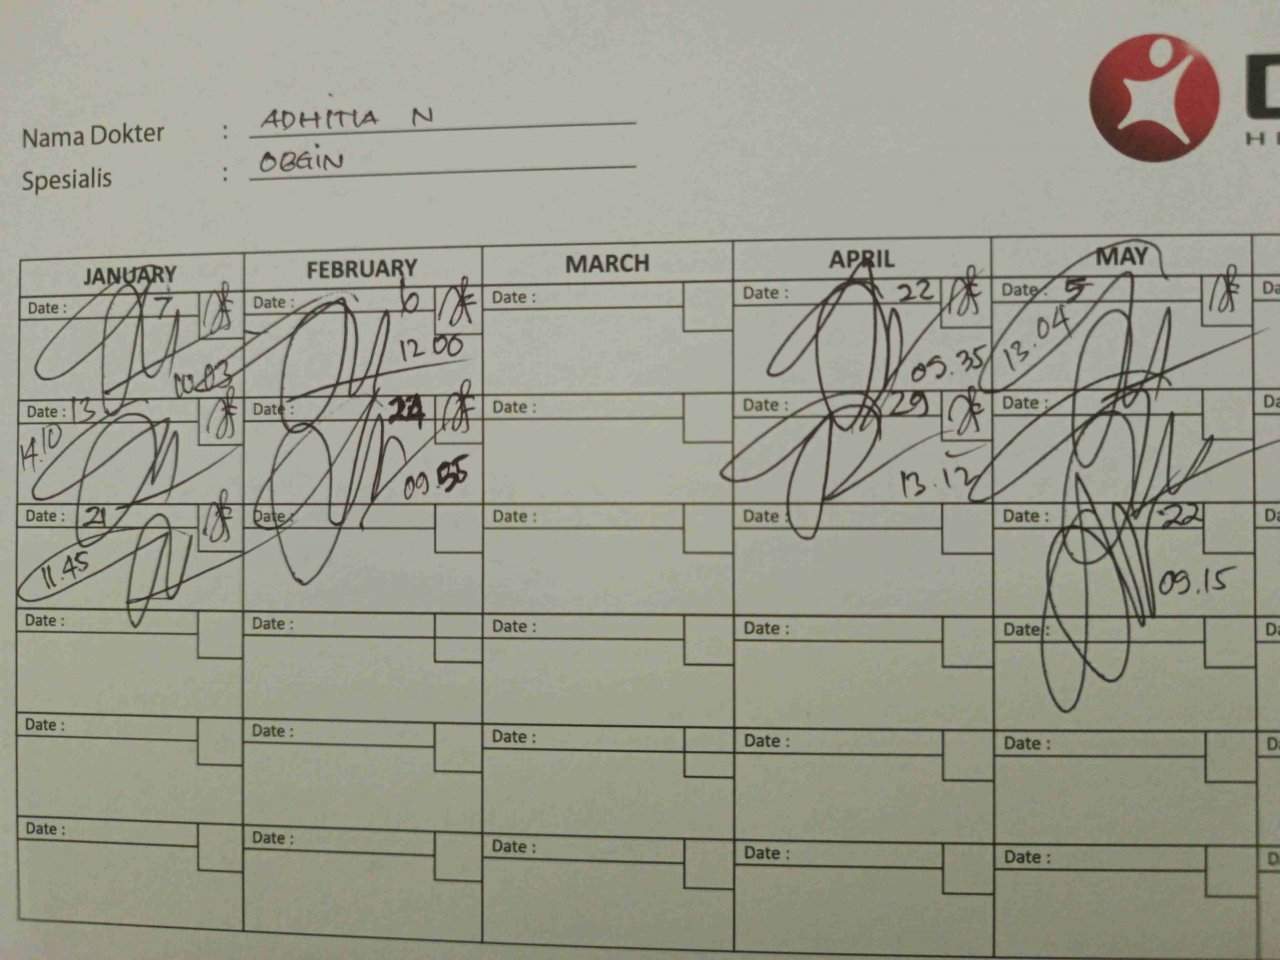 Nama Dokter : ADHITIA N
Spesialis : OBGIN
JANUARY FEBRUARY MARCH APRIL MAY
Date : 7 Date : 6 Date : Date : 22 Date : 5
00.03 12 00 09.35 13.04
Date : 13 Date : 24 Date : Date : 29 Date :
14.10 09.35 13.12
Date : 21 Date : Date : Date : Date : 22
11.45 09.15
Date : Date : Date : Date : Date :
Date : Date : Date : Date : Date :
Date : Date : Date : Date : Date :